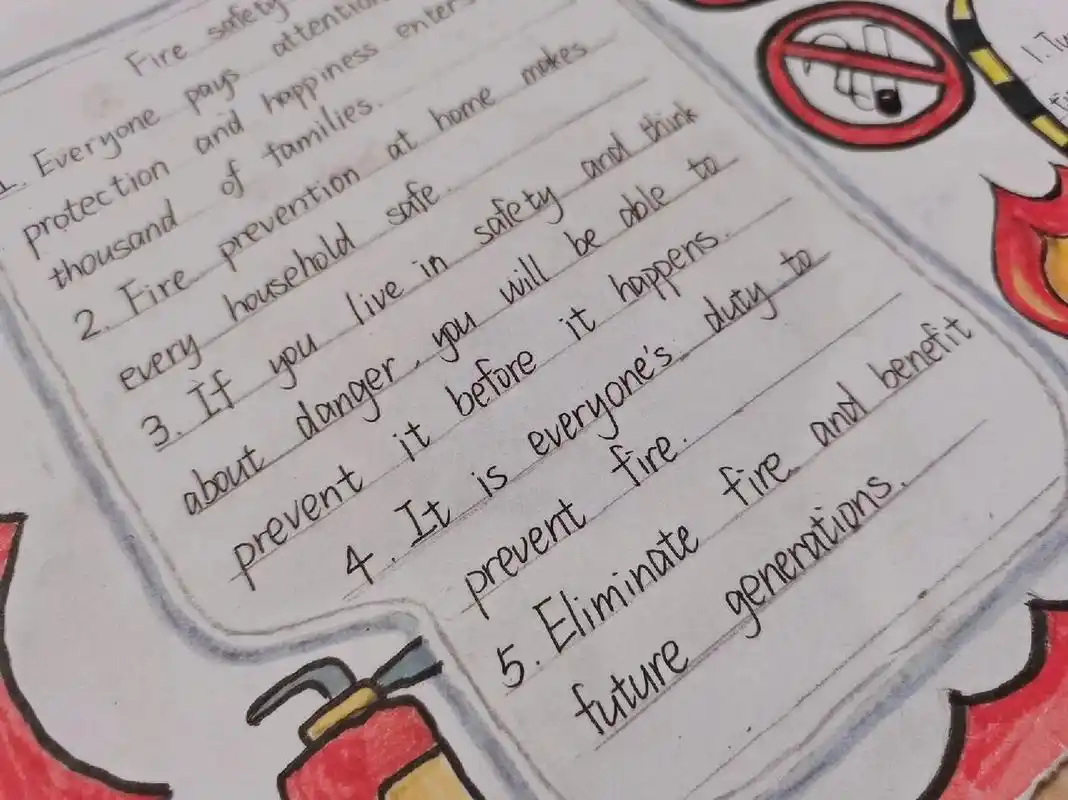 Fire safety
1. Everyone pays attention
protection and happiness enters
thousand of families.
2. Fire prevention at home makes
every household safe.
3. If you live in safety and think
about danger, you will be able to
prevent it before it happens.
4. It is everyone's duty to
prevent fire.
5. Eliminate fire and benefit
future generations.
1.